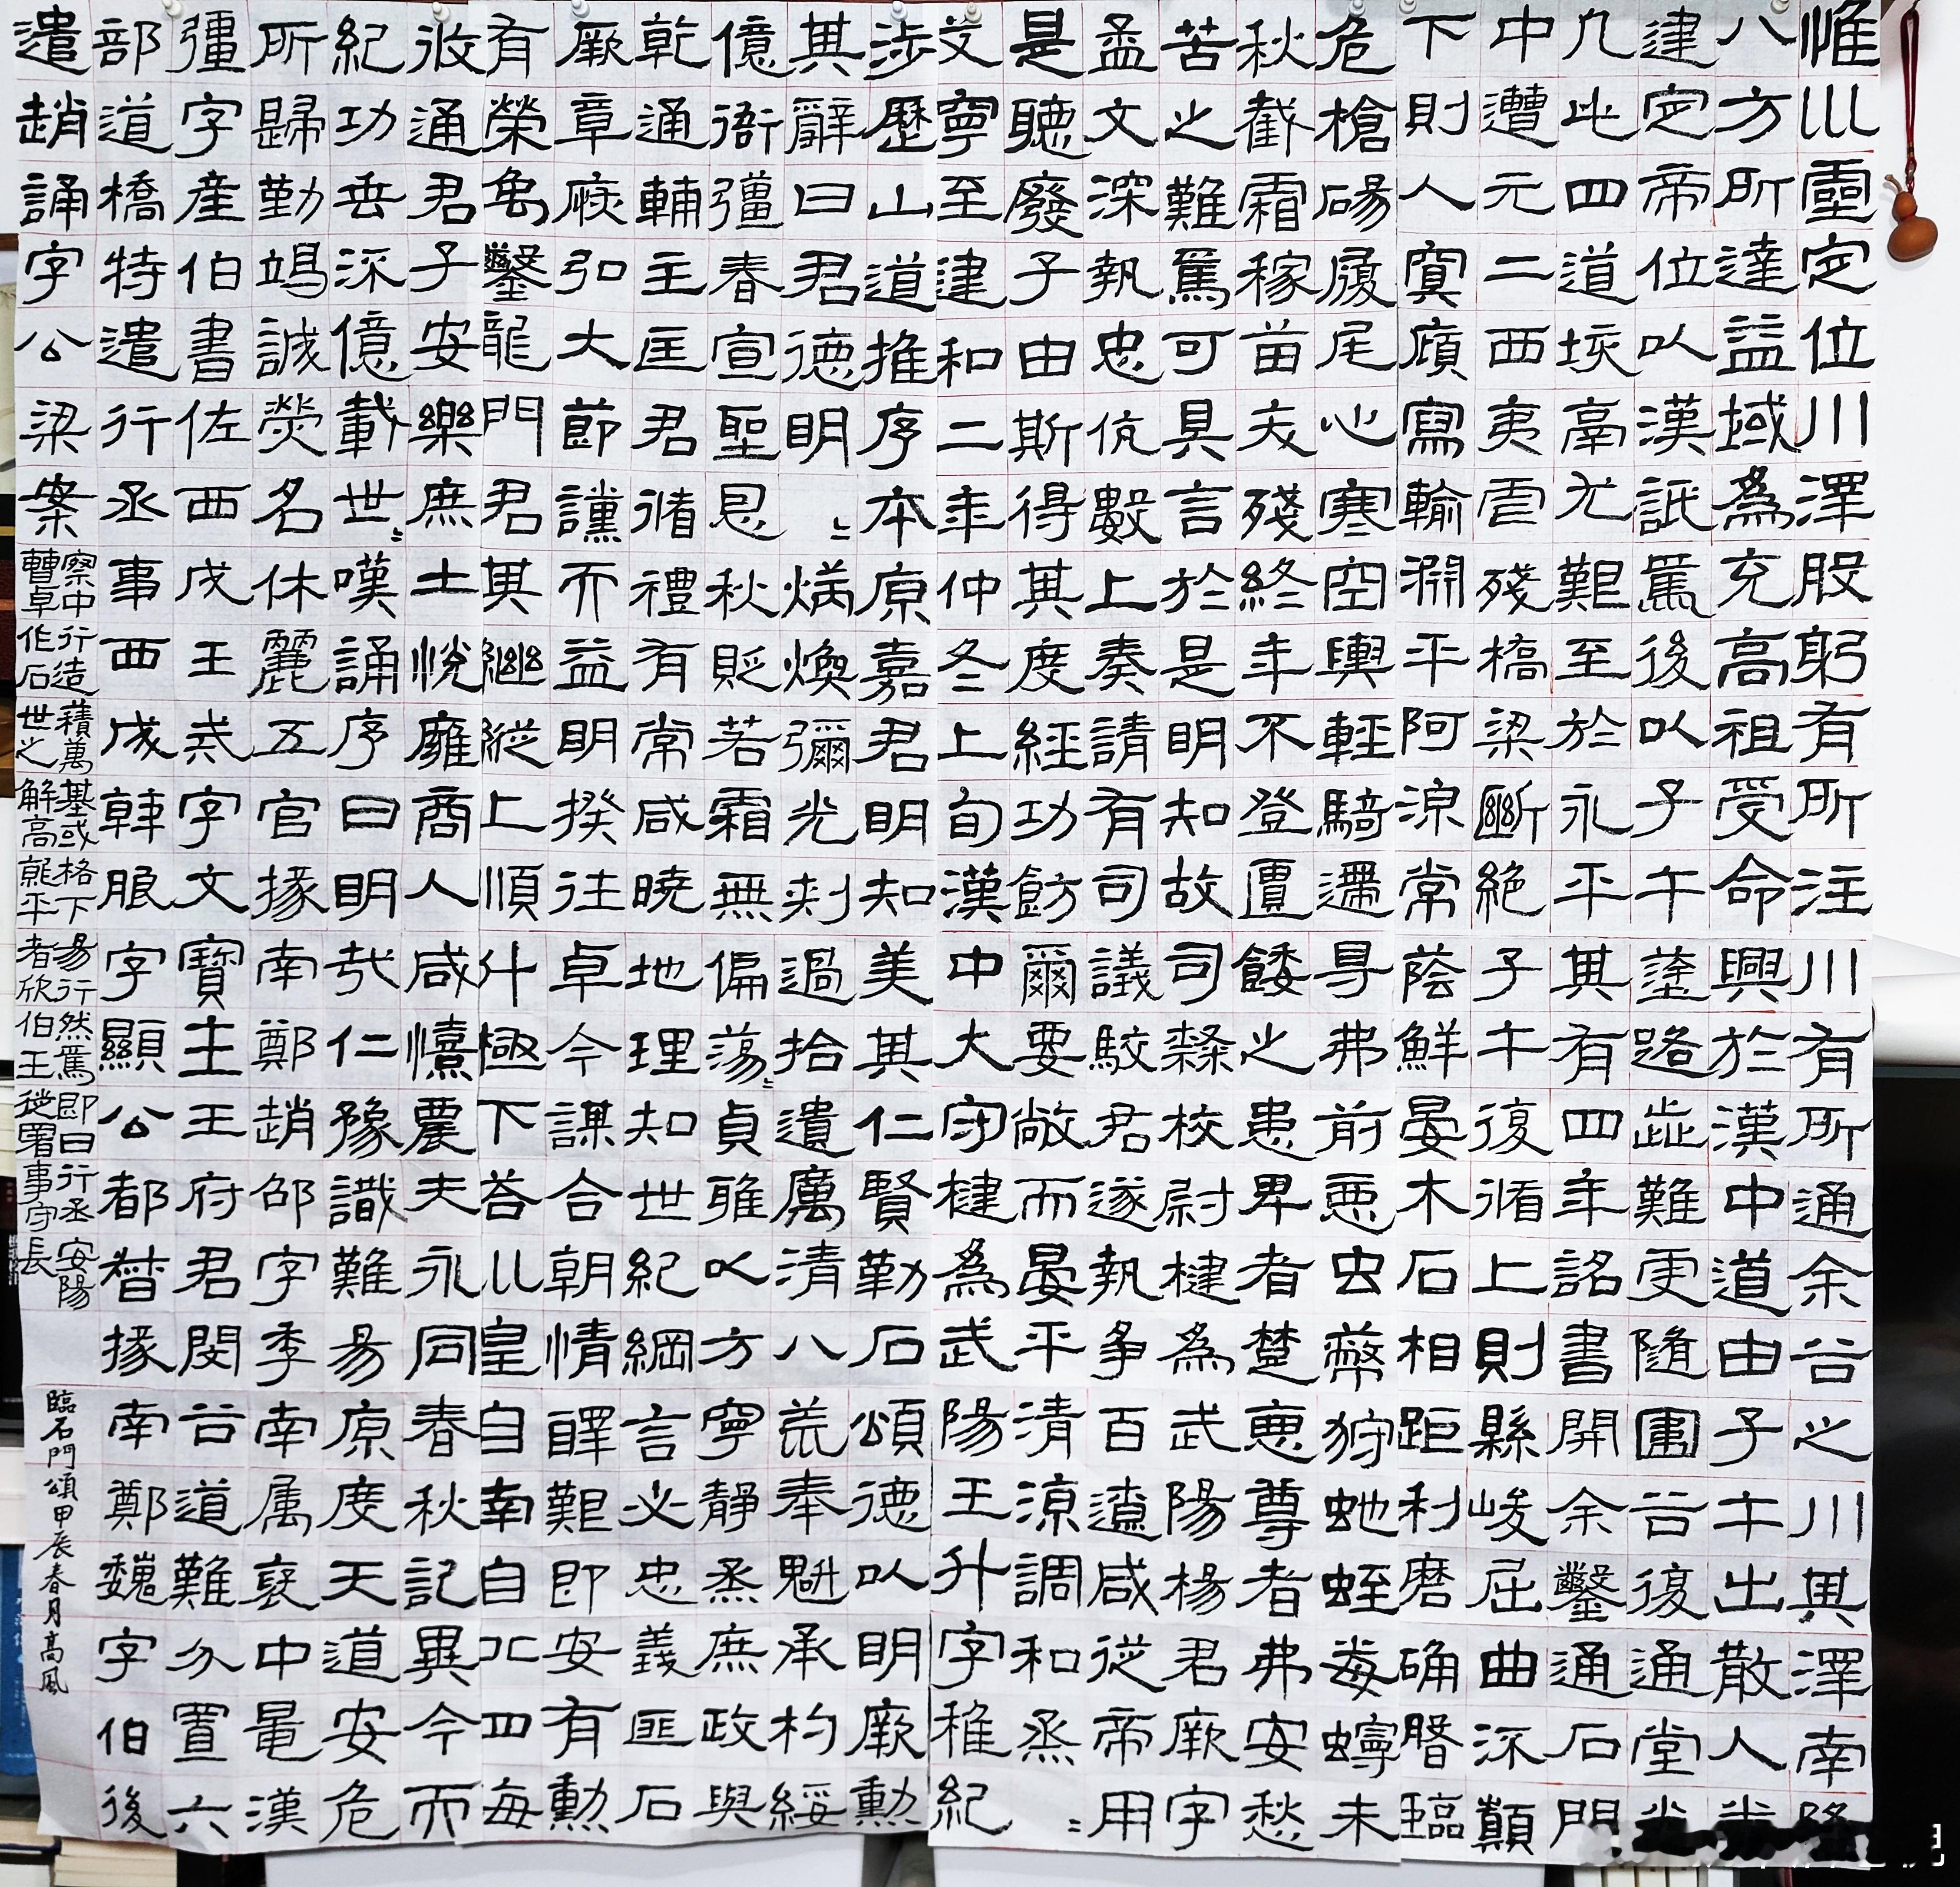 惟巛靈定位川澤股躬有所注川有所通余谷之川其澤南隆
八方所達益域為充高祖受命興於漢中道由子午出散入秦
建定帝位以漢詆焉後以子午塗路歰難更隨圍谷復通堂光
凡此四道垓鬲尤艱至於永平其有四年詔書開余鑿通石門
中遭元二西夷虐殘橋梁斷絕子午復循上則縣峻屈曲流顛
下則人寞庼寫輸淵平阿湶常蔭鮮晏木石相距利磨确臋臨
危槍碭履尾心寒空輿輕騎遰㝵弗前惡虫蔽狩虵蛭毒蟃未
秋截霜稼苗夭殘終年不登匱餧之患卑者楚惡尊者弗安愁
苦之難焉可具言於是明知故司隸校尉楗為武陽楊君厥字
孟文深執忠伉數上奏請有司議駮君遂執爭百遼咸從帝用
是聽廢子由斯得其度經功飭爾要敞而晏平清涼調和烝〻
艾寧至建和二年仲冬上旬漢中大守楗為武陽王升字稚紀
涉歷山道推序本原嘉君明知美其仁賢勒石頌德以明厥勳
其辭曰君德明〻炳煥彌光刾過拾遺厲清八荒奉魁承杓綏
億衙彊春宣聖恩秋貶若霜無偏蕩〻貞雅以方寧靜烝庶政與
乾通輔主匡君循禮有常咸曉地理知世紀綱言必忠義匪石
厥章廠弘大節讜而益明揆往卓今謀合朝情醳艱即安有勳
有榮禹鑿龍門君其繼縱上順斗極下答巛皇自南自北四海
攸通君子安樂庶士悅雍商人咸憘農夫永同春秋記異今而
紀功垂流億載世〻嘆誦序曰明哉仁豫識難易原度天道安危
所歸勤竭誠榮名休麗五官掾南鄭趙邵字季南属褒中鼂漢
彊字産伯書佐西成王戒字文寶主王府君閔谷道難分置六
部道橋特遣行丞事西成韓朖字顯公都督掾南鄭魏字伯後
遣趙誦字公梁案察中曹卓行造作石積萬世之基或解高格下就平易行者欣然焉伯王即日徙署行丞事守安陽長
臨石門頌甲辰春月高風